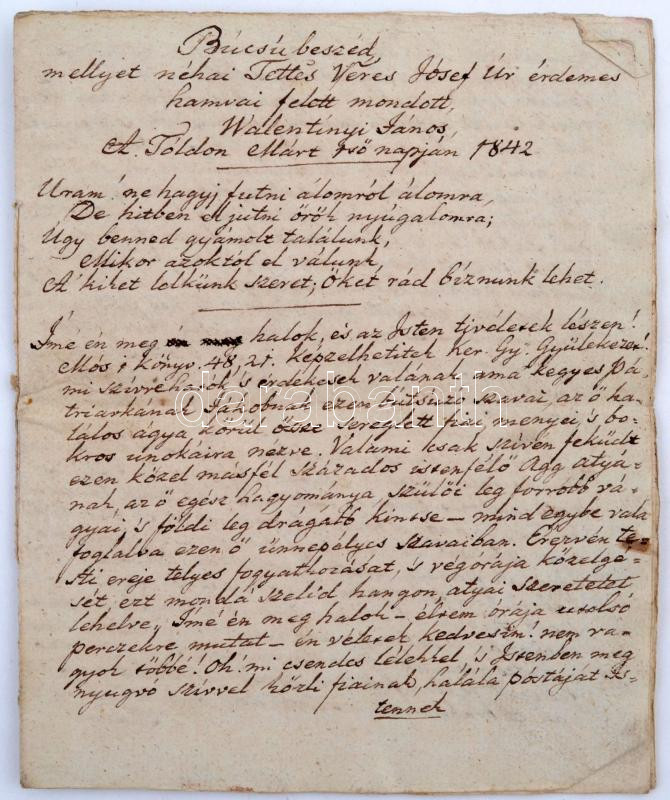 Búcsú beszéd,
mellyet néhai Tettes Veres Jósef Úr érdemes
hamvai felett mondott,
Walentínyi János,
A. Toldon Márt 1ső napján 1842
Uram! ne hagyj futni álomról álomra,
De hitben el jutni örök nyugalomra;
Ugy benned gyámolt találunk,
Mikor azoktol el válunk,
A' kiket lelkünk szeret; Őket rád bíznunk lehet.
Imé én meg halok, és az Isten tivéletek lészen!
Mós: 1 könyv. 48, 21. Képzelhetitek Ker. Gy. Gyülekezet!
mi szívrehatók 's érdekesek valának ama kegyes Pa-
triarkának Jákobnak ezen butsuzó szavai, az ő ha-
lálos ágya körül össze sereglett fiai, menyei, 's bo-
kros unokáira nézve. Valami tsak szivén feküdt
ezen közel másfél százados istenfélő Agg atyá-
nak, az ő egész hagyománya, szülői leg forróbb vá-
gyai, 's földi leg drágább kintse – mind egybe vala
foglalva ezen ő ünnepélyes szavaiban. Érezvén te-
sti ereje teljes fogyatkozását, 's végórája közelge-
sét, ezt mondá szelid hangon, atyai szeretetet
lehelve, Imé én meg halok – éltem órája utolsó
perczekre mutat – én véletek kedvesim! nem va-
gyok többé! Oh! mi csendes lélekkel 's Istenben meg
nyugvó szívvel közli fiainak, halála postáját Is-
tennek
darabanth